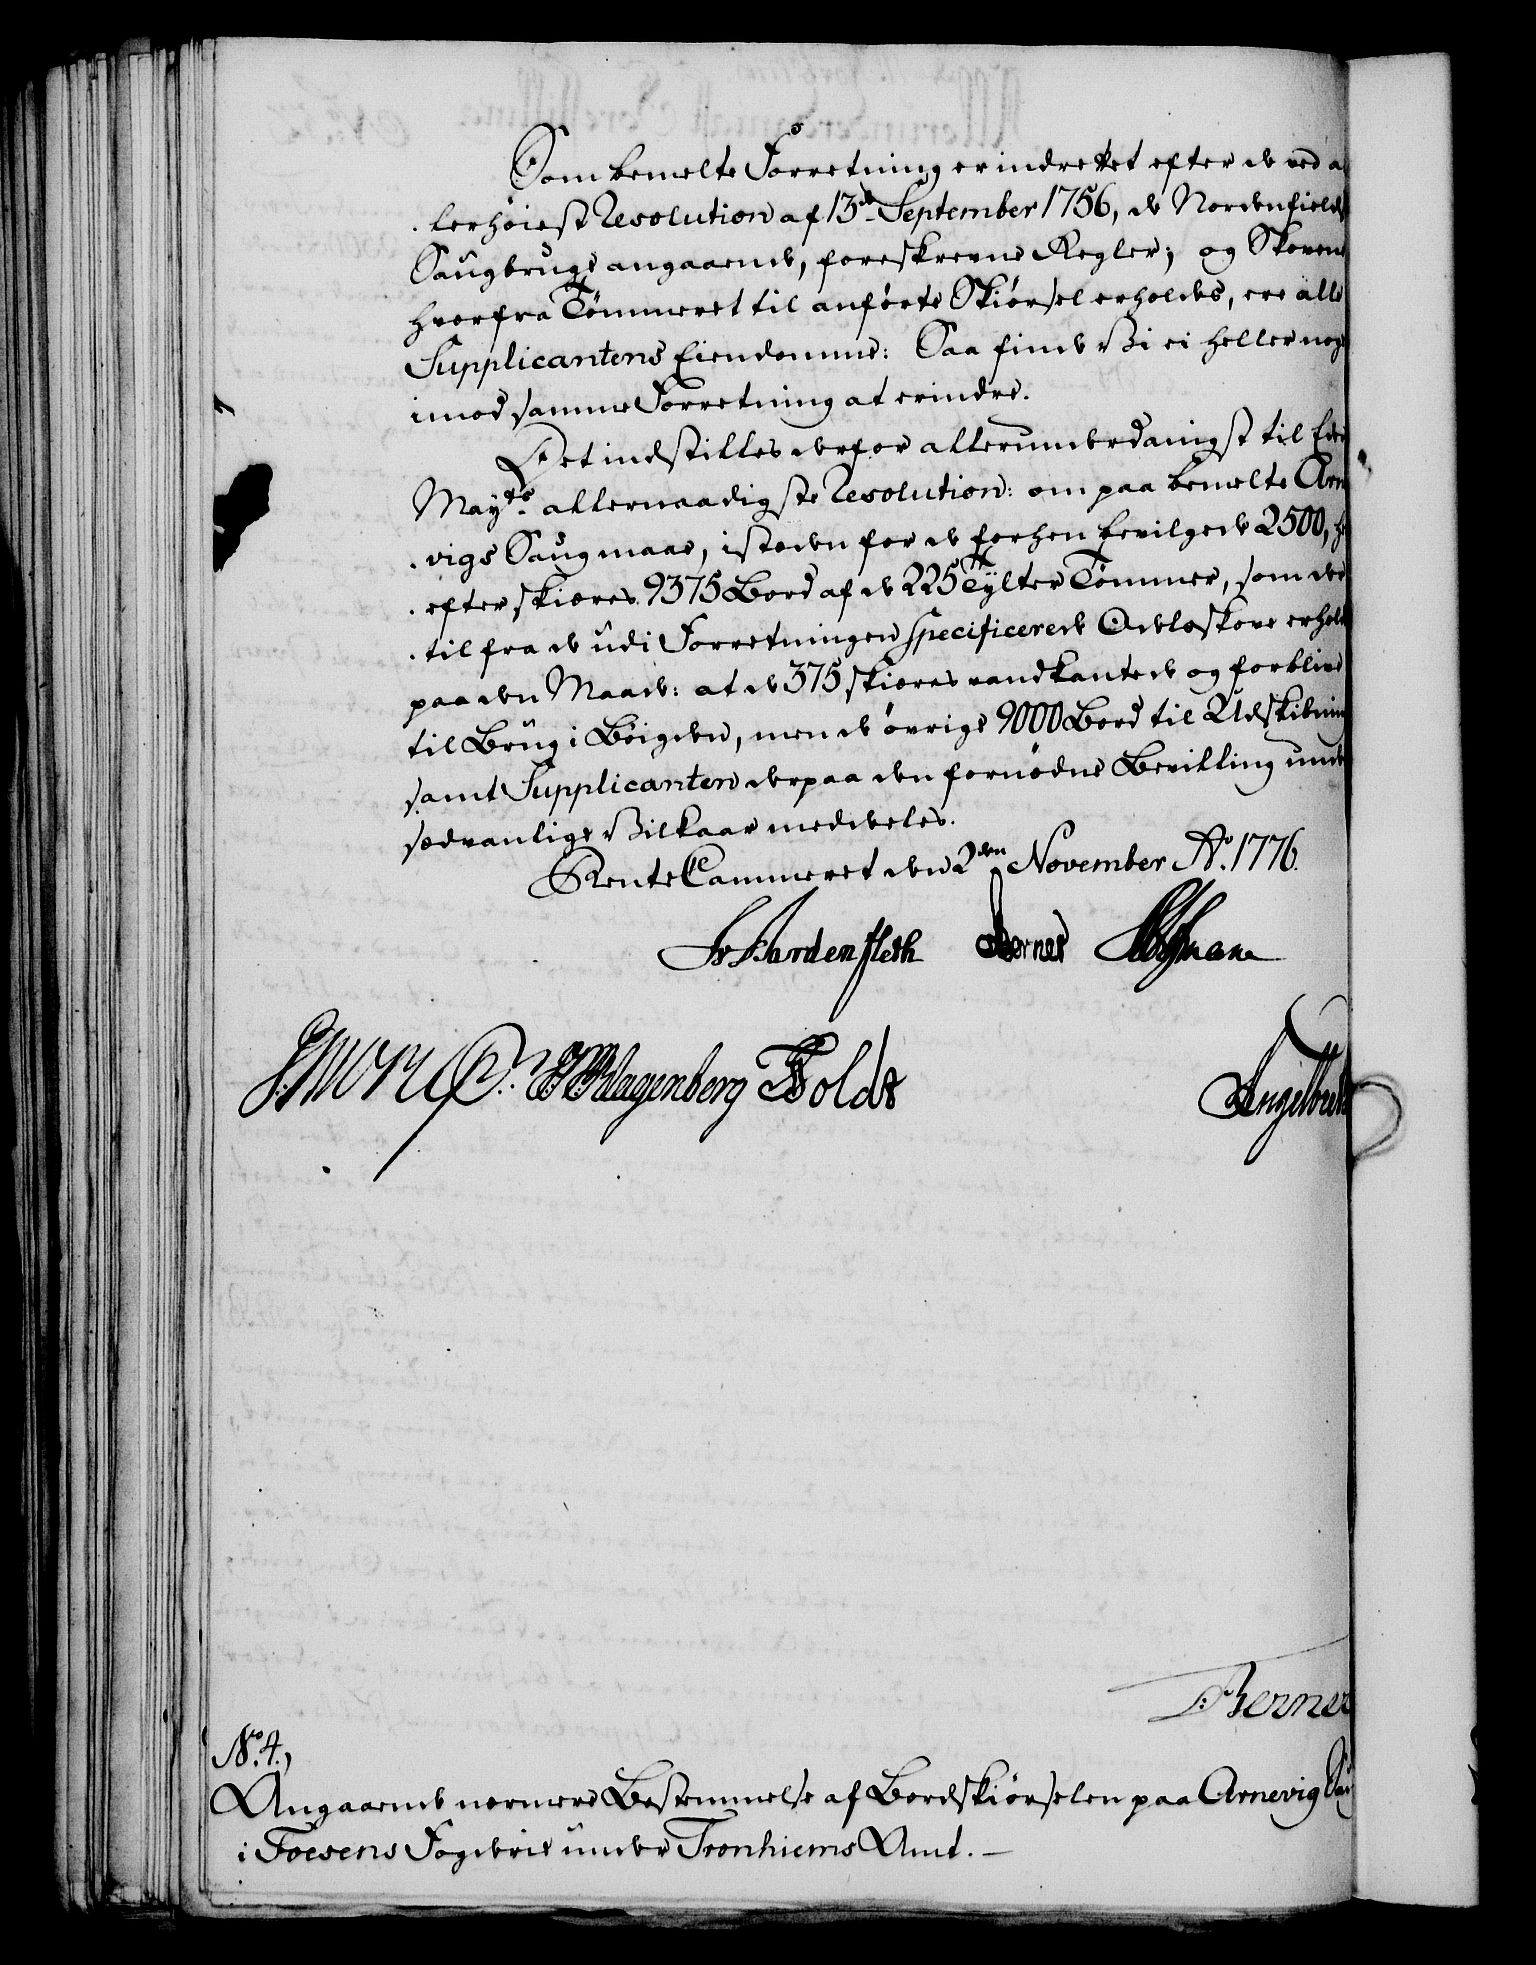 Som bemelte Forretning er indrettet efter de ved a
lerhøiest Resolution af 13de September 1756, de Nordenfields
Saugbruge angaaende, foreskrevne Regler; og Skovene
hvorfra Tømmeret til anførte Skiørsel erholdes, ere alle
Supplicantens Eiendomme: Saa finde Vi ei heller noge
imod samme Forretning at erindre.
Det indstilles derfor allerunderdanigst til Eders
Mayts. allernaadigste Resolution: om paa bemelte Arn
vigs Saug maae, isteden for de forhen bevilgede 2500, he
efter skiæres 9375 Bord af de 225 Tylter Tømmer, som der
til fra de udi Forretningen specificerede Odelsskove erhold
paa den Maade: at de 375 skiæres vandkantede og forblive
til Brug i Bøigden, men de øvrige 9000 Bord til Udskibning
samt Supplicanten derpaa den fornødne Bevilling unde
sædvanlige Vilkaar meddeles.
RenteCammeret den 2den November Ao. 1776.
Hardenfleth Berner
Wagenberg Holdt Engelbreth
Berner
No. 4.,
Angaaende nærmere Bestemmelse af Bordskiørselen paa Arnevig Sau
i Foesens Fogderie under Tronhiems Amt. —